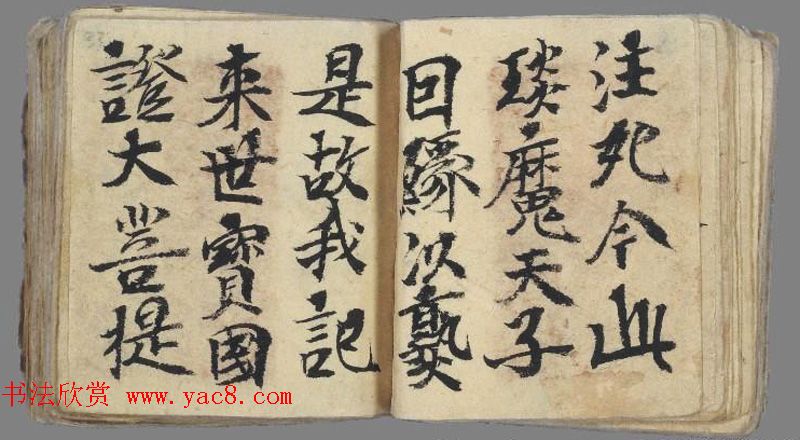 注死今此
琰魔天子
囙緣以熟
是故我記
来世寶國
證大菩提
书法欣赏 www.yac8.com